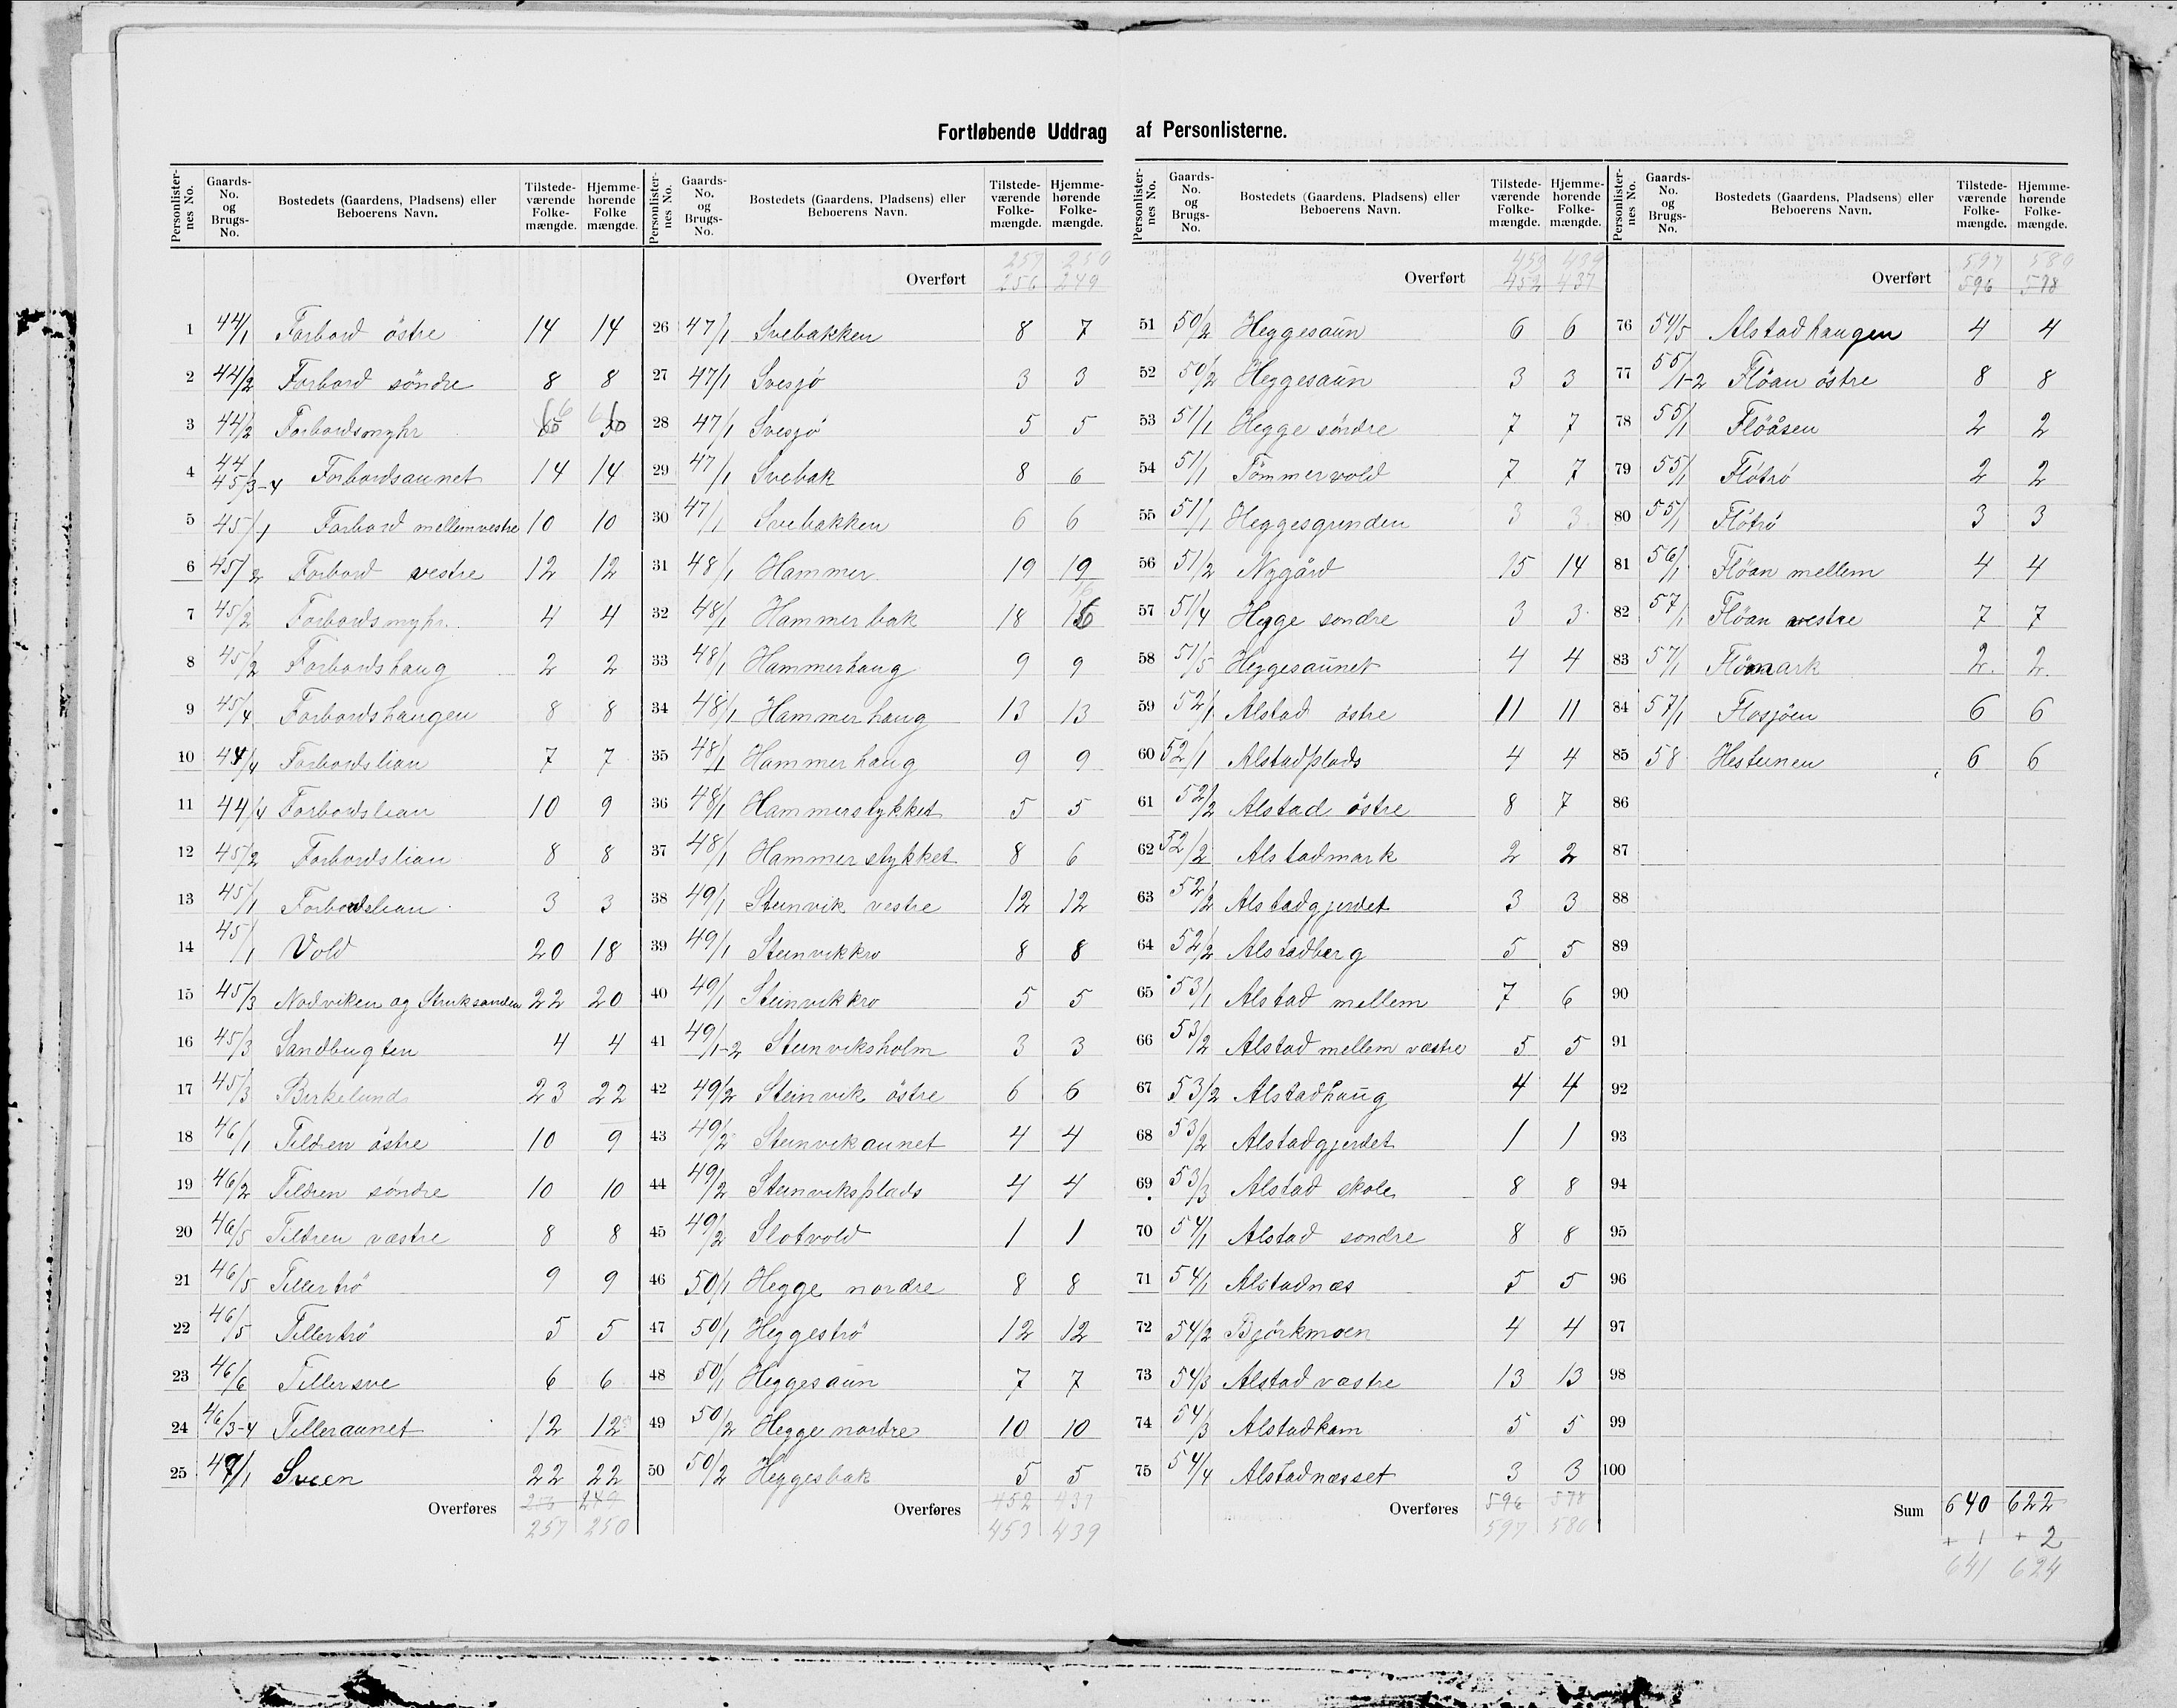 Fortløbende Uddrag af Personlisterne.
Personlister-nes No. | Gaards-No. og Brugs-No. | Bostedets (Gaardens, Pladsens) eller Beboerens Navn. | Tilstede-værende Folke-mængde. | Hjemme-hørende Folke mængde.
1 44/1 Forbord östre 14 14
2 44/2 Forbord söndre 8 8
3 44/2 Forbordsmyhr 6 6
4 44/1 45/3-4 Forbordsaunet 14 14
5 45/1 Forbord mellemvestre 10 10
6 45/2 Forbord vestre 12 12
7 45/2 Forbordsmyhr 4 4
8 45/2 Forbordshaug 2 2
9 45/4 Forbordshaugen 8 8
10 44/4 Forbordslian 7 7
11 44/4 Forbordslian 10 9
12 45/2 Forbordslian 8 8
13 45/1 Forbordslian 3 3
14 45/1 Vold 20 18
15 45/3 Nodviken og Struksanden 22 20
16 45/3 Sandbugten 4 4
17 45/3 Birkelund 23 22
18 46/1 Tildren östre 10 9
19 46/2 Tildren söndre 10 10
20 46/5 Tildren væstre 8 8
21 46/5 Tillertrö 9 9
22 46/5 Tillertrö 5 5
23 46/6 Tillersve 6 6
24 46/3-4 Tilleraunet 12 12
25 47/1 Sveen 22 22
Overføres 256 249
257 250
Personlister-nes No. | Gaards-No. og Brugs-No. | Bostedets (Gaardens, Pladsens) eller Beboerens Navn. | Tilstede-værende Folke-mængde. | Hjemme-hørende Folke-mængde.
257 250
Overført 256 249
26 47/1 Svebakken 8 7
27 47/1 Svesjö 3 3
28 47/1 Svesjö 5 5
29 47/1 Svebak 8 6
30 47/1 Svebakken 6 6
31 48/1 Hammer 19 19
32 48/1 Hammerbak 18 16
33 48/1 Hammerhaug 9 9
34 48/1 Hammerhaug 13 13
35 48/1 Hammerhaug 9 9
36 48/1 Hammerstykket 5 5
37 48/1 Hammerstykket 8 6
38 49/1 Steinvik vestre 12 12
39 49/1 Steinvikkro 8 8
40 49/1 Steinvikkro 5 5
41 49/1-2 Steinviksholm 3 3
42 49/2 Steinvik östre 6 6
43 49/2 Steinvikaunet 4 4
44 49/2 Steinviksplads 4 4
45 49/2 Slotvold 1 1
46 50/1 Hegge nordre 8 8
47 50/1 Heggeströ 12 12
48 50/1 Heggesaun 7 7
49 50/2 Hegge nordre 10 10
50 50/2 Heggesbak 5 5
Overføres 452 437
453 439
Personlister-nes No. | Gaards-No. og Brugs-No. | Bostedets (Gaardens, Pladsens) eller Beboerens Navn. | Tilstede-værende Folke-mængde. | Hjemme-hørende Folke-mængde.
453 439
Overført 452 437
51 50/2 Heggesaun 6 6
52 50/2 Heggesaun 3 3
53 51/1 Hegge söndre 7 7
54 51/1 Tömmervold 7 7
55 51/1 Heggesgrinden 3 3
56 51/2 Nygård 15 14
57 51/4 Hegge söndre 3 3
58 51/5 Heggesaunet 4 4
59 52/1 Alstad östre 11 11
60 52/1 Alstadplads 4 4
61 52/2 Alstad östre 8 7
62 52/2 Alstadmark 2 2
63 52/2 Alstadgjerdet 3 3
64 52/2 Alstadberg 5 5
65 53/1 Alstad mellem 7 6
66 53/2 Alstad mellem væstre 5 5
67 53/2 Alstadhaug 4 4
68 53/2 Alstadgjerdet 1 1
69 53/3 Alstad skole 8 8
70 54/1 Alstad söndre 8 8
71 54/1 Alstadnæs 5 5
72 54/2 Björkmoen 4 4
73 54/3 Alstad væstre 13 13
74 54/3 Alstadkam 5 5
75 54/4 Alstadnæsset 3 3
Overføres 596 578
597 580
Personlister-nes No. | Gaards-No. og Brugs-No. | Bostedets (Gaardens, Pladsens) eller Beboerens Navn. | Tilstede-værende Folke-mængde. | Hjemme-hørende Folke-mængde.
597 580
Overført 596 578
76 54/5 Alstadhaugen 4 4
77 55/1-2 Flöan östre 8 8
78 55/1 Flöåsen 2 2
79 55/1 Flötrö 2 2
80 55/1 Flötrö 3 3
81 56/1 Flöan mellem 4 4
82 57/1 Flöan vestre 7 7
83 57/1 Flömark 2 2
84 57/1 Flosjöen 6 6
85 58 Hestunen 6 6
86
87
88
89
90
91
92
93
94
95
96
97
98
99
100
Sum 640 622
+ 1 + 2
641 624